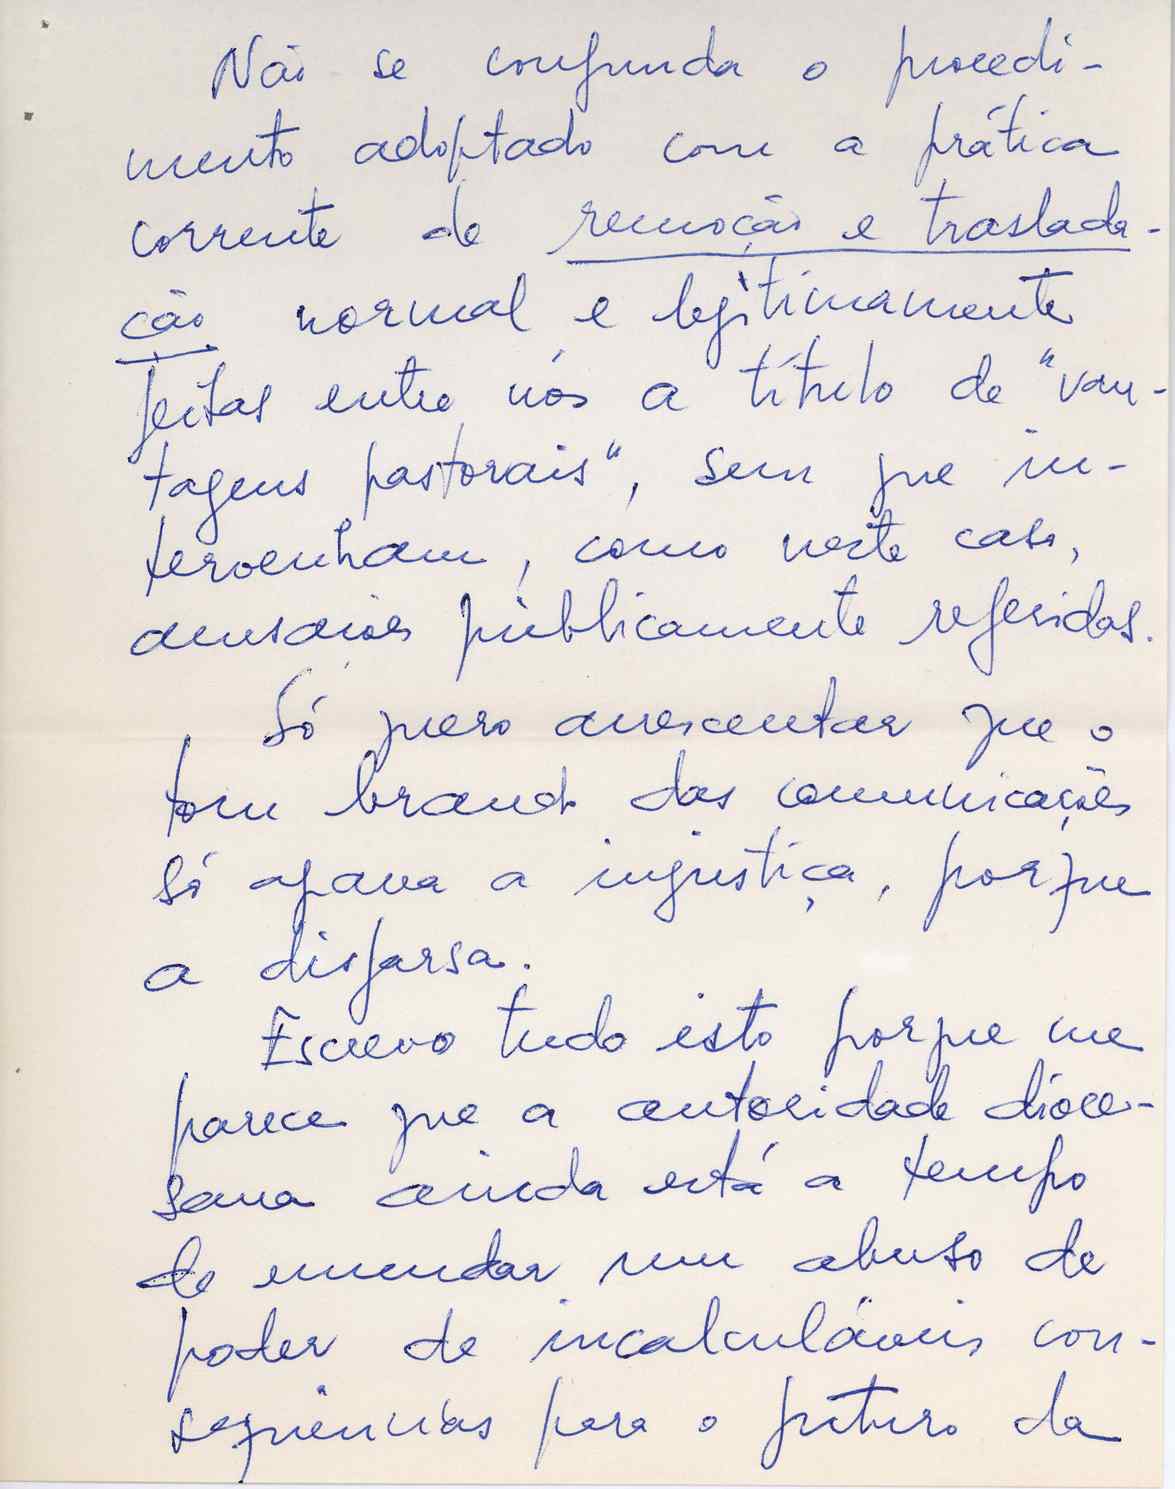 Não se confunda o procedi-
mento adoptado com a prática
corrente de remoção e traslada-
ção normal e legìtimamente
feitas entre nós a título de "van-
tagens pastorais", sem que in-
tervenham, como neste caso,
acusações pùblicamente referidas.
Só quero acrescentar que o
tom brando das comunicações
só agrava a injustiça, porque
a disfarsa.
Escrevo tudo isto porque me
parece que a autoridade dioce-
sana ainda está a tempo
de emendar um abuso de
poder de incalculáveis con-
sequências para o futuro da